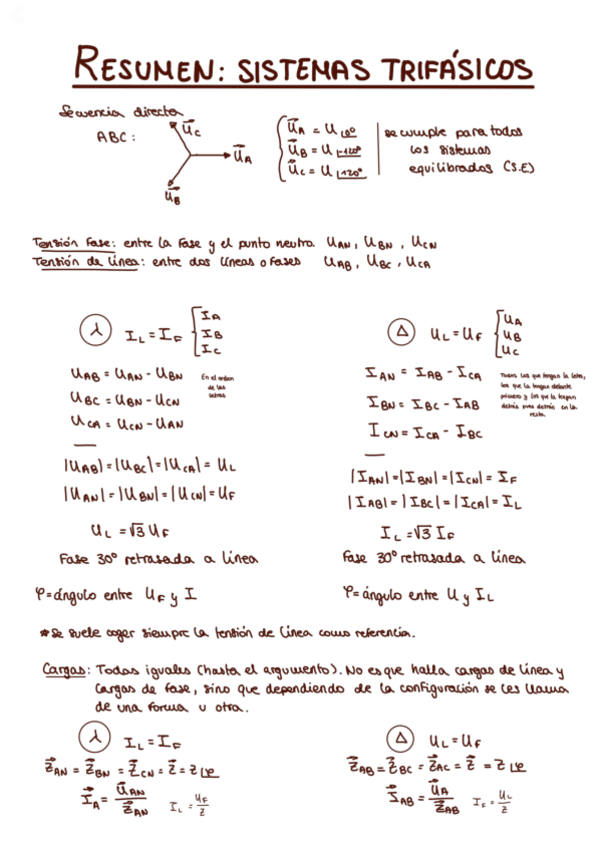 RESUMEN: SISTEMAS TRIFÁSICOS
Secuencia directa
ABC:
U⃗C
U⃗A
U⃗B
U⃗A = U∠0°
U⃗B = U∠-120°
U⃗C = U∠120°
se cumple para todos
los sistemas
equilibrados (S.E)
Tensión Fase: entre la Fase y el punto neutro. UAN, UBN, UCN
Tensión de línea: entre dos líneas o Fases UAB, UBC, UCA
⅄ IL = IF
IA
IB
IC
UAB = UAN - UBN
UBC = UBN - UCN
UCA = UCN - UAN
En el orden
de las
letras
|UAB| = |UBC| = |UCA| = UL
|UAN| = |UBN| = |UCN| = UF
UL = √3 UF
Fase 30° retrasada a línea
φ = ángulo entre UF y I
Δ UL = UF
UA
UB
UC
IAN = IAB - ICA
IBN = IBC - IAB
ICN = ICA - IBC
Todas las que tengan la letra,
las que la tengan delante
primero y las que la tengan
detrás pues detrás en la
resta.
|IAN| = |IBN| = |ICN| = IF
|IAB| = |IBC| = |ICA| = IL
IL = √3 IF
Fase 30° retrasada a línea
φ = ángulo entre U y IL
*Se suele coger siempre la tensión de línea como referencia.
Cargas: Todas iguales (hasta el argumento). No es que halla cargas de línea y
cargas de fase, sino que dependiendo de la configuración se les llama
de una forma u otra.
⅄ IL = IF
Z⃗AN = Z⃗BN = Z⃗CN = Z⃗ = Z∠φ
I⃗A = U⃗AN / Z⃗AN IL = UF / Z
Δ UL = UF
Z⃗AB = Z⃗BC = Z⃗AC = Z⃗ = Z∠φ
I⃗AB = U⃗A / Z⃗AB IF = UL / Z